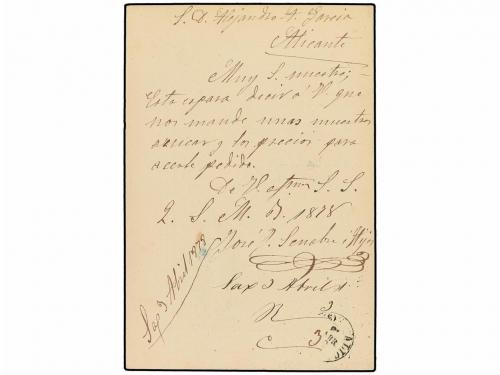 S. D. Alejandro A. Garcia
Alicante
Muy S. nuestro;
Esta es para decir á V. que
nos mande unas muestras
azucar y los precios para
acerle pedido.
De V. afmos S. S.
Q. S. M. B. 1878
José J. Senabre é Hijos
Sax 3 Abril
Sax 3 Abril 1878
R
C 3